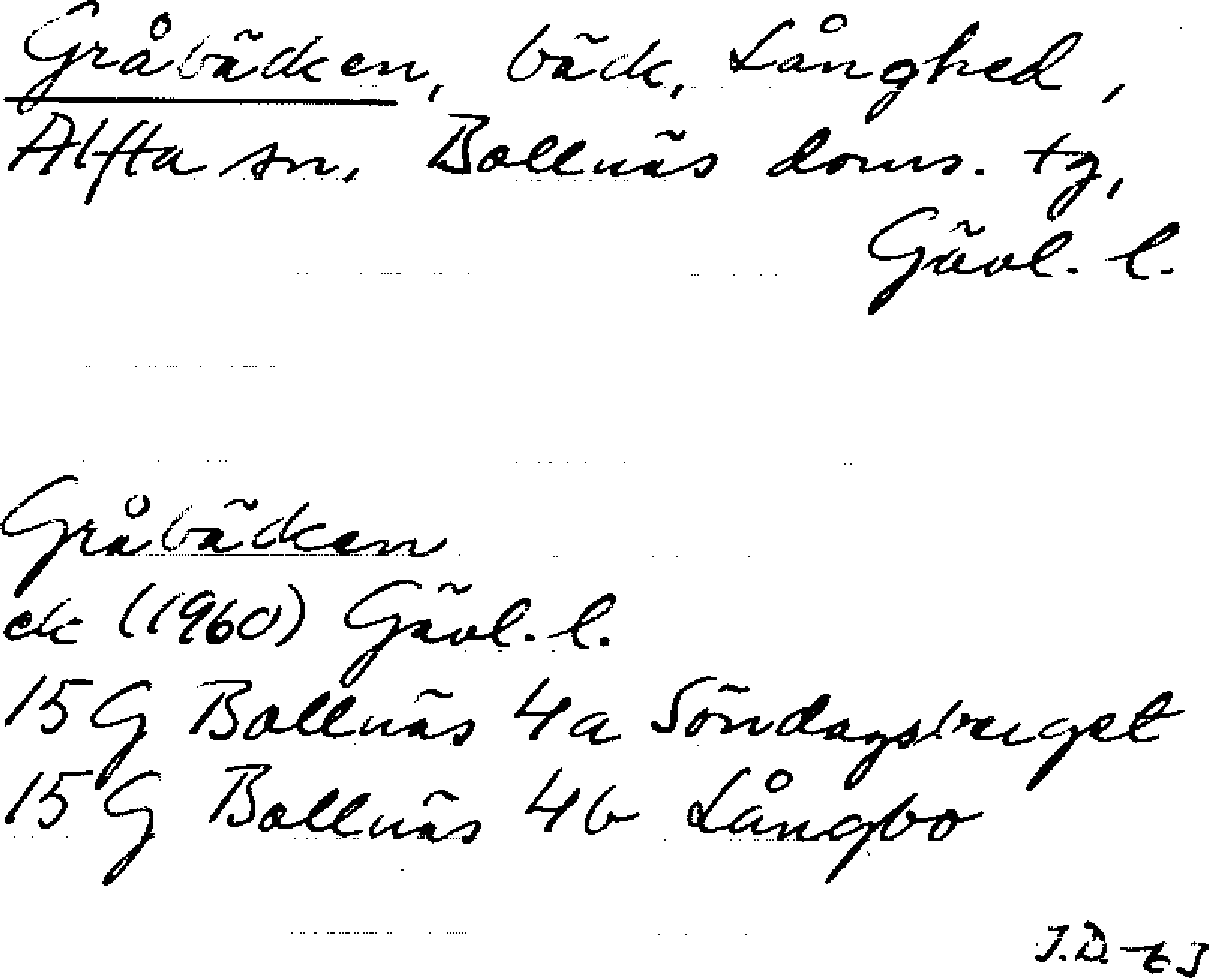 Gråbäcken, bäck, Långhed,
Alfta sn, Bollnäs doms. tg,
Gävl. l.
Gråbäcken
ek (1960) Gävl. l.
15 G Bollnäs 4a Söndagsberget
15 G Bollnäs 4b Långbo